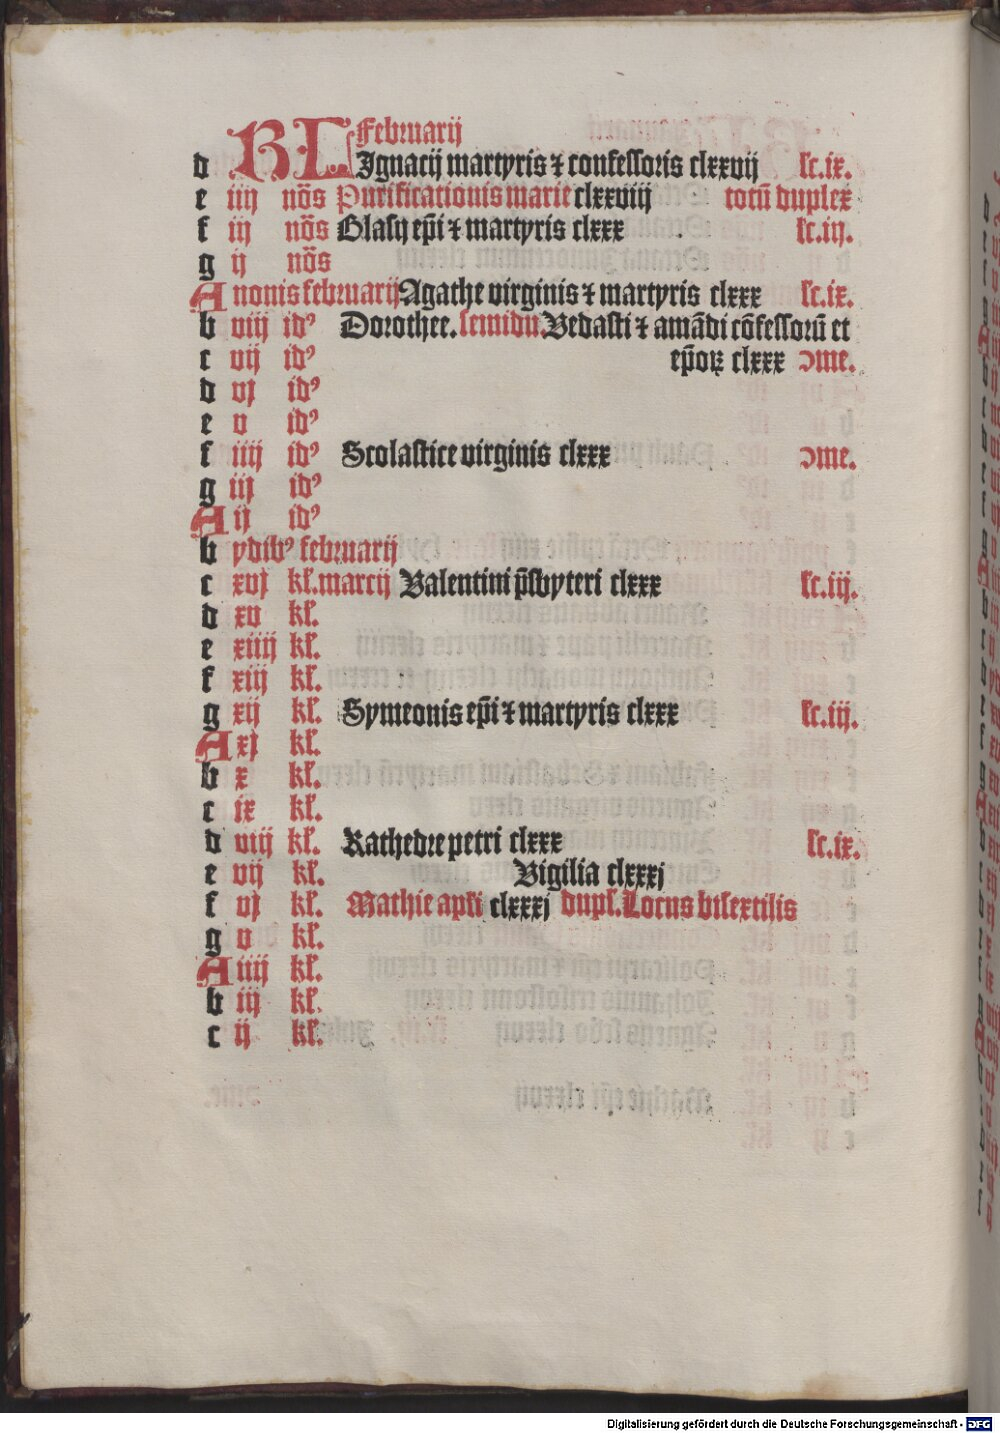 KL Februarij
d Ignacij martyris ⁊ confessoris clxxvij sc.ix.
e iiij nōs Purificationis marie clxxviij totū duplex
f iij nōs Blasij ep̄i ⁊ martyris clxxx sc.iij.
g ij nōs
A nonis februarij Agathe virginis ⁊ martyris clxxx sc.ix.
b viij idꝰ Dorothee. semidu. Vedasti ⁊ amādi cōfessorū et
c vij idꝰ ep̄oꝝ clxxx ↄme.
d vj idꝰ
e v idꝰ
f iiij idꝰ Scolastice virginis clxxx ↄme.
g iij idꝰ
A ij idꝰ
b ydibꝰ februarij
c xvj kl̄. marcij Valentini p̄sbyteri clxxx sc.iij.
d xv kl̄.
e xiiij kl̄.
f xiij kl̄.
g xij kl̄. Symeonis ep̄i ⁊ martyris clxxx sc.iij.
A xj kl̄.
b x kl̄.
c ix kl̄.
d viij kl̄. Kathedre petri clxxx sc.ix.
e vij kl̄. Vigilia clxxxj
f vj kl̄. Mathie apl̄i clxxxj dupl̄. Locus bisextilis
g v kl̄.
A iiij kl̄.
b iij kl̄.
c ij kl̄.
Digitalisierung gefördert durch die Deutsche Forschungsgemeinschaft - DFG